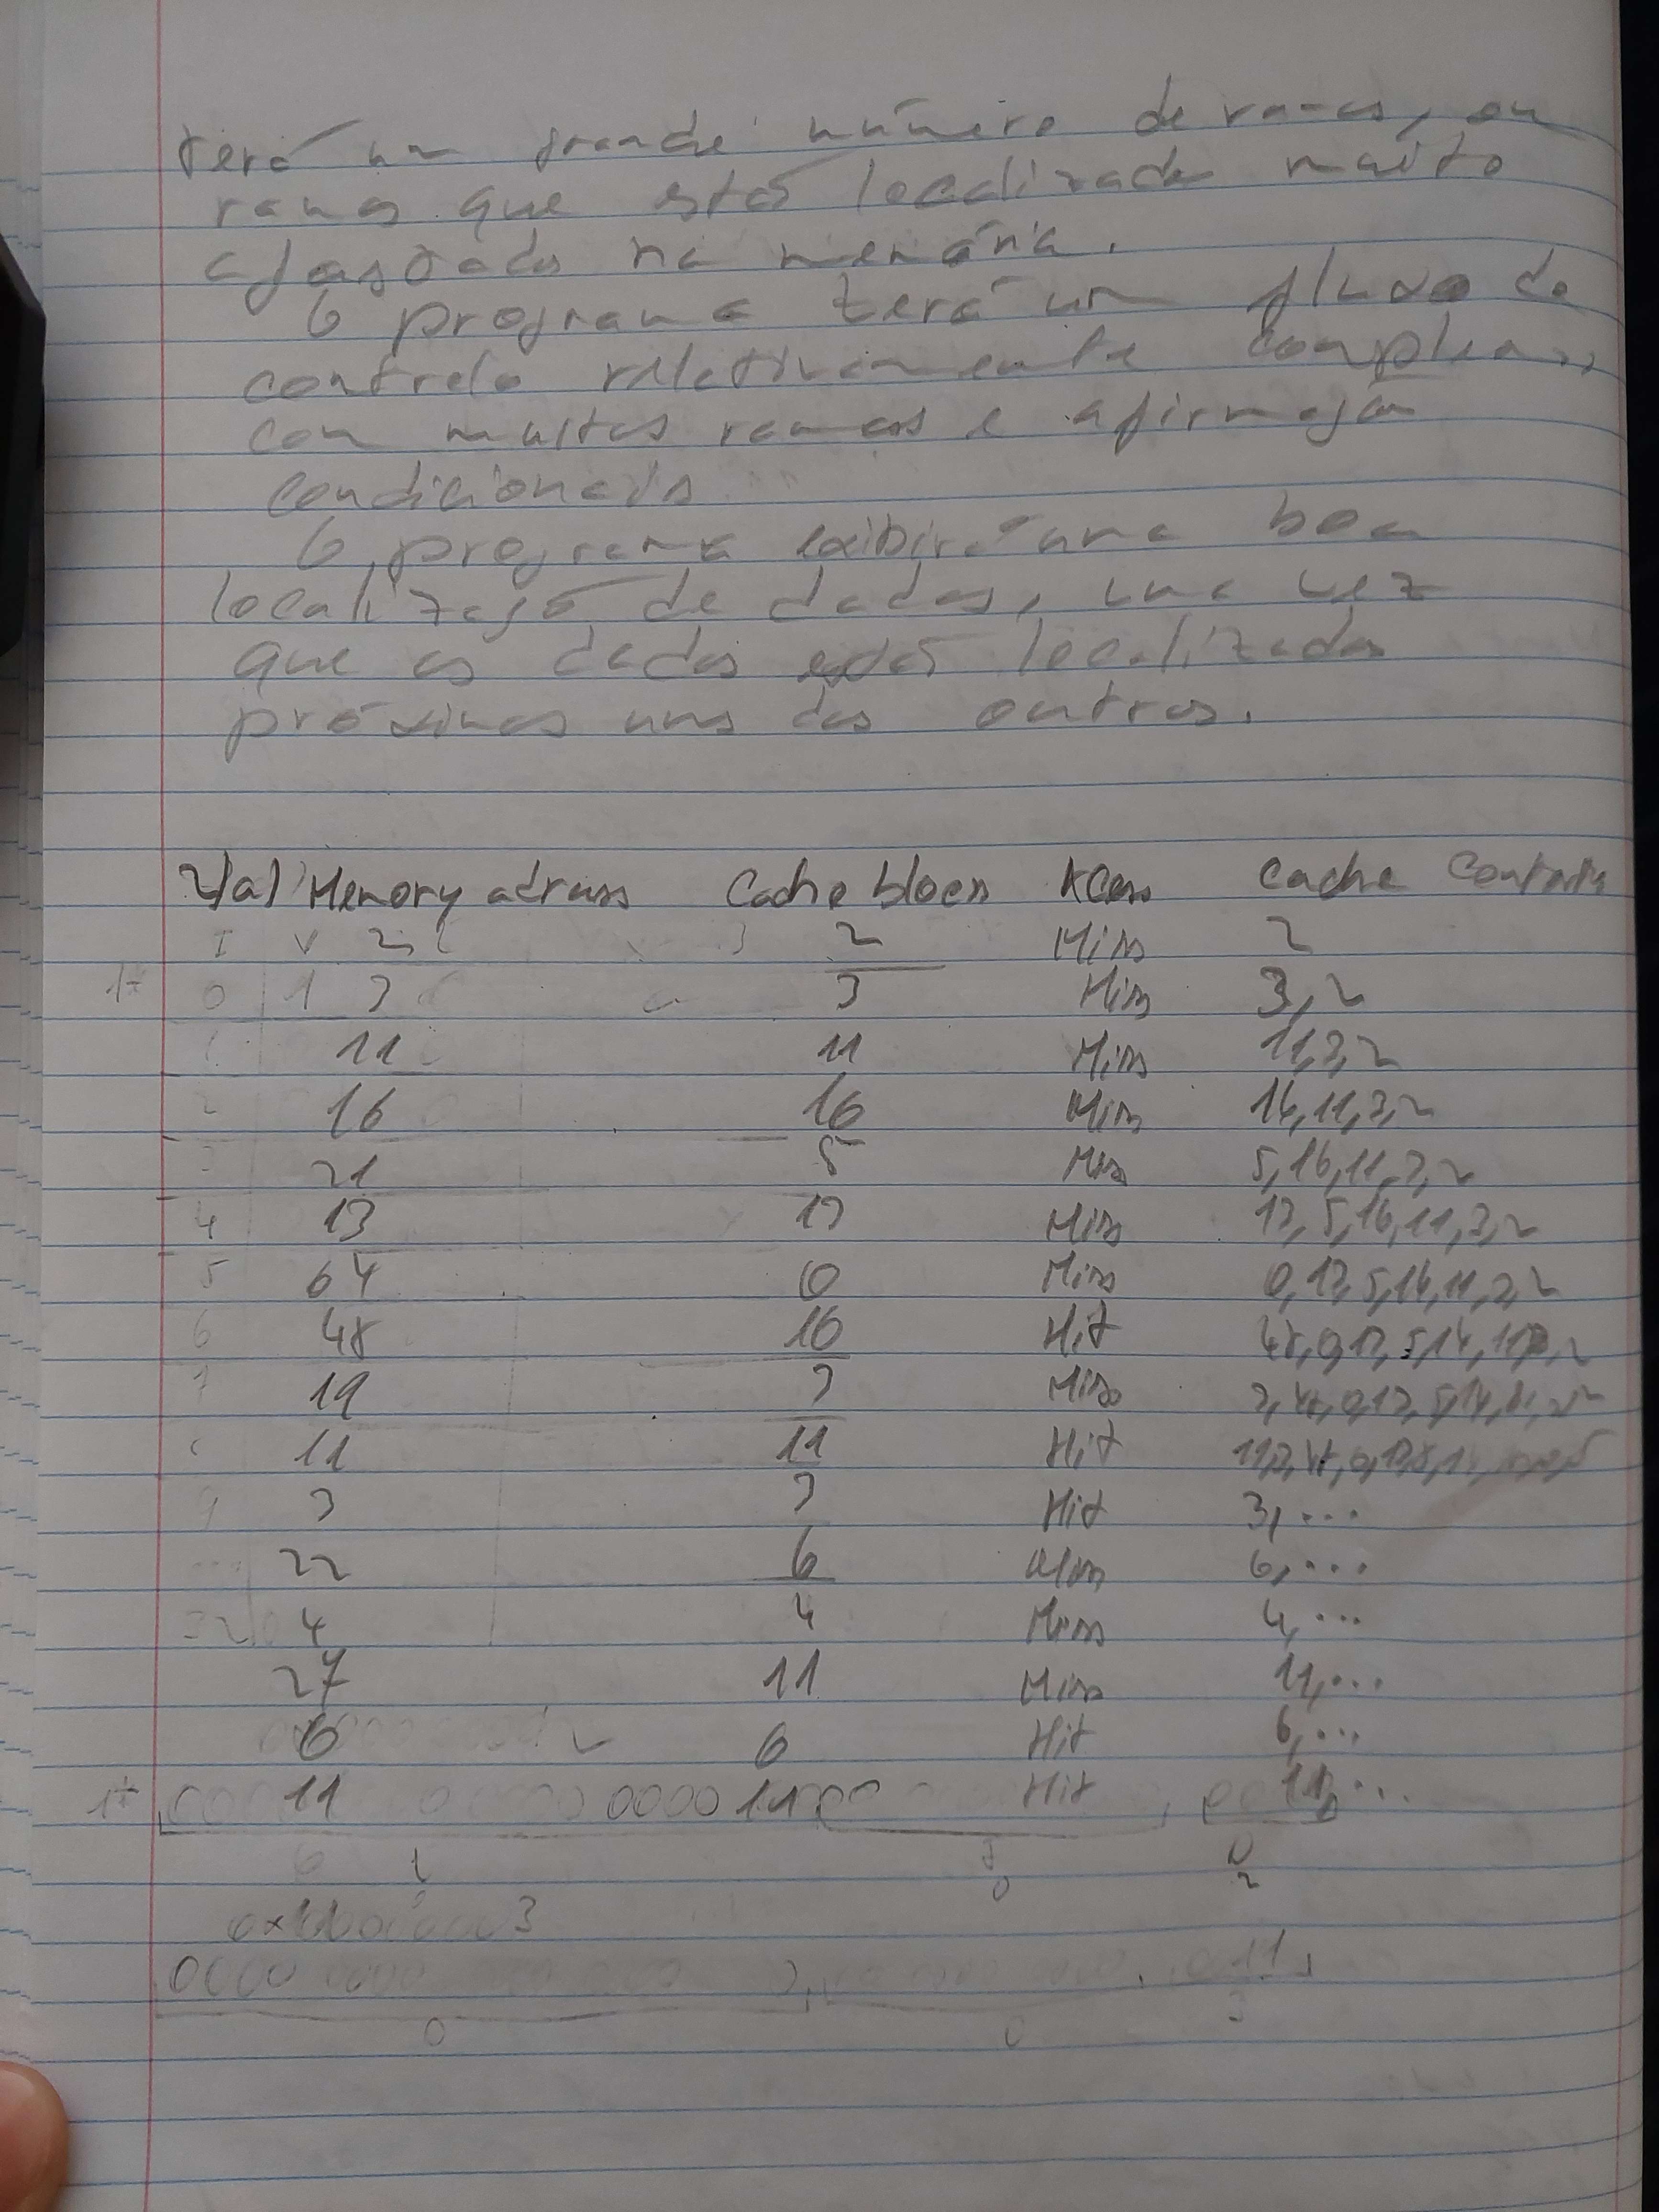 terá um grande número de ramos, ou
ramos que está localizado muito
afastados na memória.
O programa terá um fluxo de
controlo relativamente complexo,
com muitos ramos e afirmaçõs
condicionais
O programa exibirá uma boa
localizaçõ de dados, uma vez
que os dados estõ localizados
próximos uns dos outros.
2)a) Memory adress Cache block Acess Cache Contents
2 2 Miss 2
1 3 3 Miss 3, 2
11 11 Miss 11,3,2
16 16 Miss 16,11,3,2
21 5 Miss 5,16,11,3,2
4 13 13 Miss 13,5,16,11,3,2
5 64 0 Miss 0,13,5,16,11,3,2
6 48 16 Hit 48,0,13,5,16,11,3,2
19 3 Miss
11 11 Hit
3 3 Hit 3, ...
22 6 Miss 6, ...
4 4 Miss 4, ...
27 11 Miss 11, ...
6 6 Hit 6, ...
11 11 Hit 11, ...
0 2
3
0000 0000 011
0 0 3